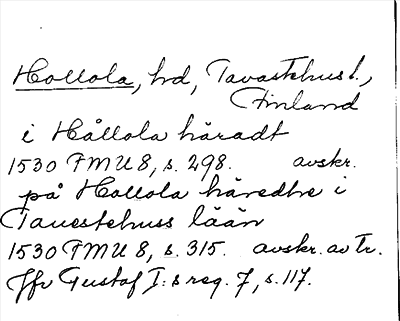 Hollola, hd, Tavastehus l.,
Finland
i Hållola häradt
1530 FMU 8, s. 298. avskr.
på Hollola häredhe i
Tauestehuss lään
1530 FMU 8, s. 315. avskr. av Tr.
Jfr Gustaf I:s reg. 7, s. 117.